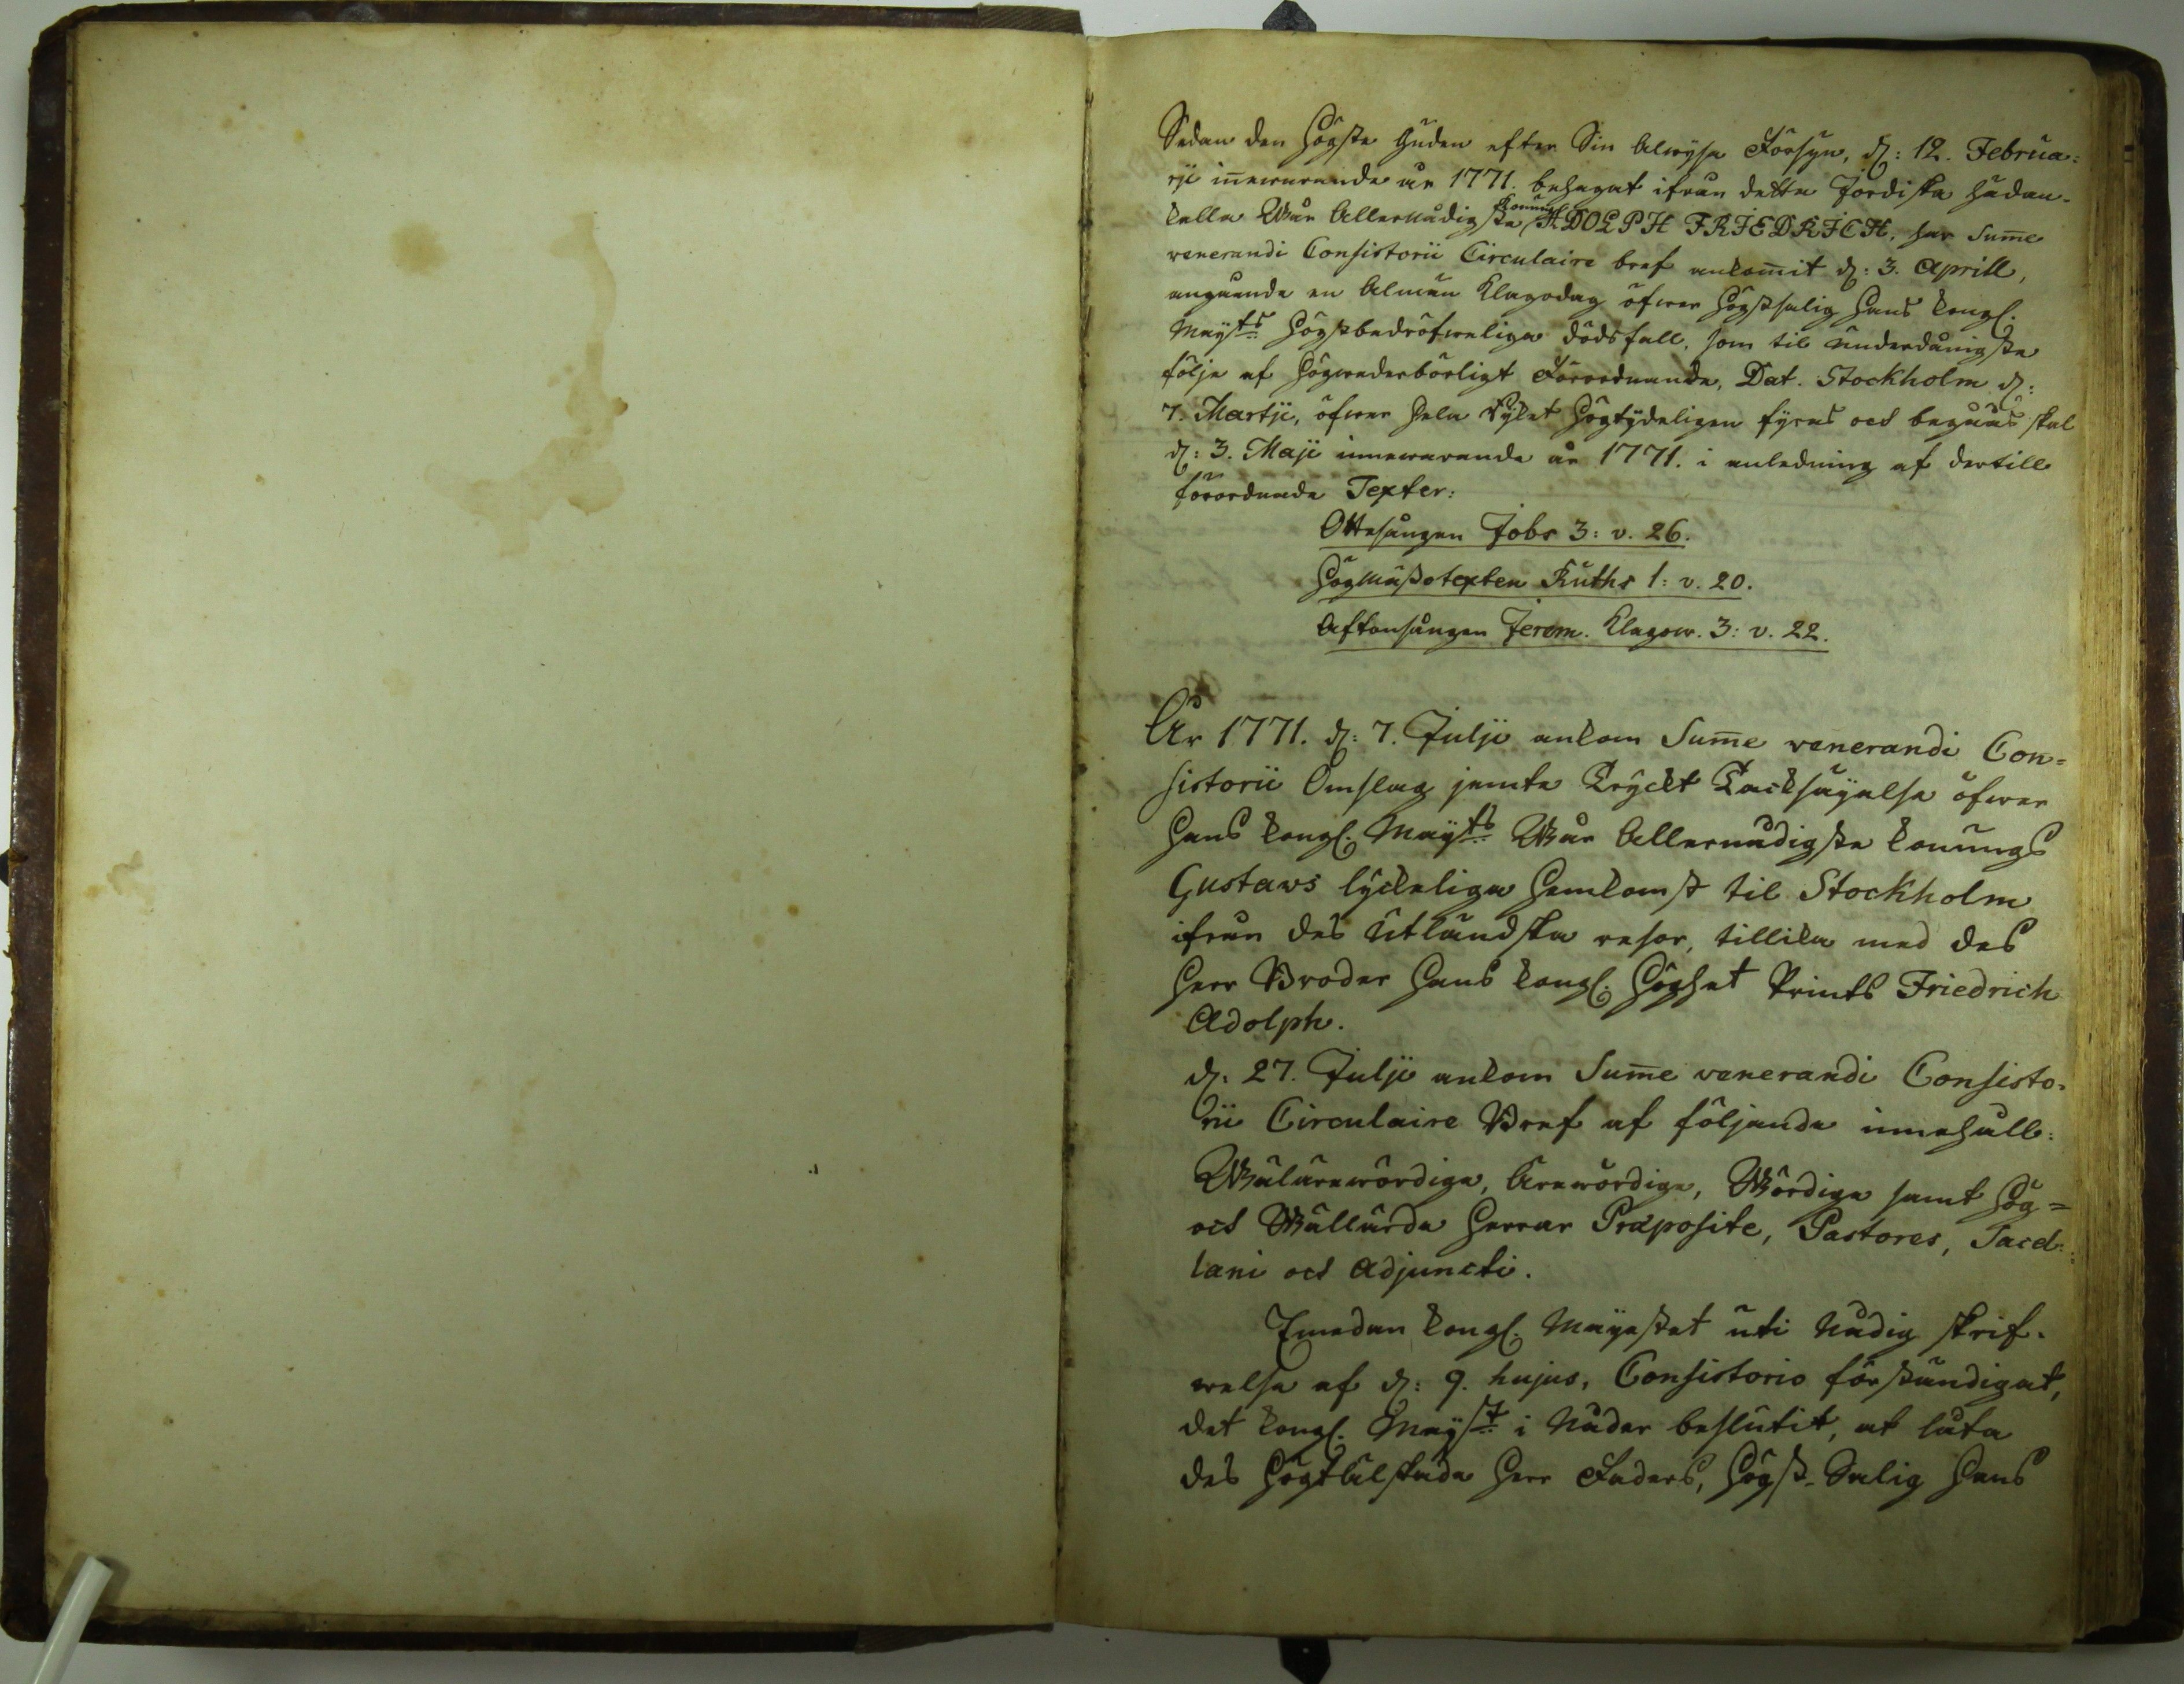 Sedan den Högste Guden efter Sin Alwysa Försyn, d: 12. Februa:
rji in̄ewarande år 1771. behagat ifrån detta Jordiska hädan-
kalla Wår Allernådigste Konung ADOLPH FRIEDRICH, har Sum̄e
venerandi Consistorii Circulaire bref ankom̄it d: 3. Aprill,
angående en Almän Klagodag öfwer Högstsalig Hans Kongl.
Mayts Högstbedröfweliga dödsfall, som til underdånigste
följe af Högwederbörligt Förordnande, Dat. Stockholm d:
7. Martji, öfwer hela Rijket Högtydeligen fyras och begås skal
d: 3. Maji innewarande år 1771. i anledning af dertill
förordnade Texter:
Ottesången Jobs 3: v. 26.
Högmässotexten Ruths 1: v. 20.
Aftonsången Jerem. Klagow. 3: v. 22.
År 1771. d: 7. Julji ankom Sum̄e venerandi Con=
sistorii Omslag jemte Tryckt Tacksäyelse öfwer
Hans Kongl. Mayts Wår Allernådigste Konungs
Gustavs lyckeliga Hemkomst til Stockholm
ifrån des Utländska resor, tillika med des
Herr Broder Hans Kongl. Höghet Prints Friedrich
Adolph.
d: 27. Julji ankom Sum̄e venerandi Consisto-
rii Circulaire Bref af följande innehåll:
Wälärewördige, Ärewördige, Wördige samt Hög=
och Wällärde Herrar Præposite, Pastores, Sacel:
lani och Adjuncti.
Emedan Kongl. Mayestet uti Nådig skrif-
welse af d: 9. hujus, Consistorio förständigat,
det Kongl. Mayst i Nåder beslutit, at låta
des Högtälskade Herr Faders, Högst-Salig Hans